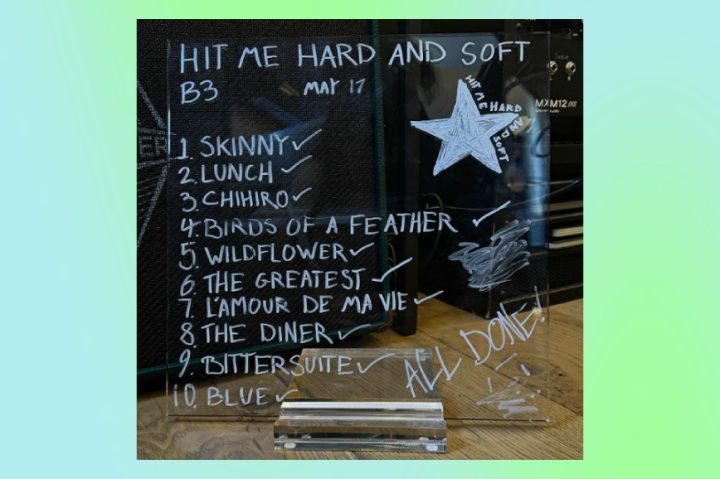 HIT ME HARD AND SOFT
B3 MAY 17
HIT ME HARD
AND
SOFT
MXM12.
1. SKINNY ✓
2. LUNCH ✓
3. CHIHIRO ✓
4. BIRDS OF A FEATHER ✓
5. WILDFLOWER ✓
6. THE GREATEST ✓
7. L'AMOUR DE MA VIE ✓
8. THE DINER ✓
9. BITTERSUITE ✓
10. BLUE ✓
ALL DONE!